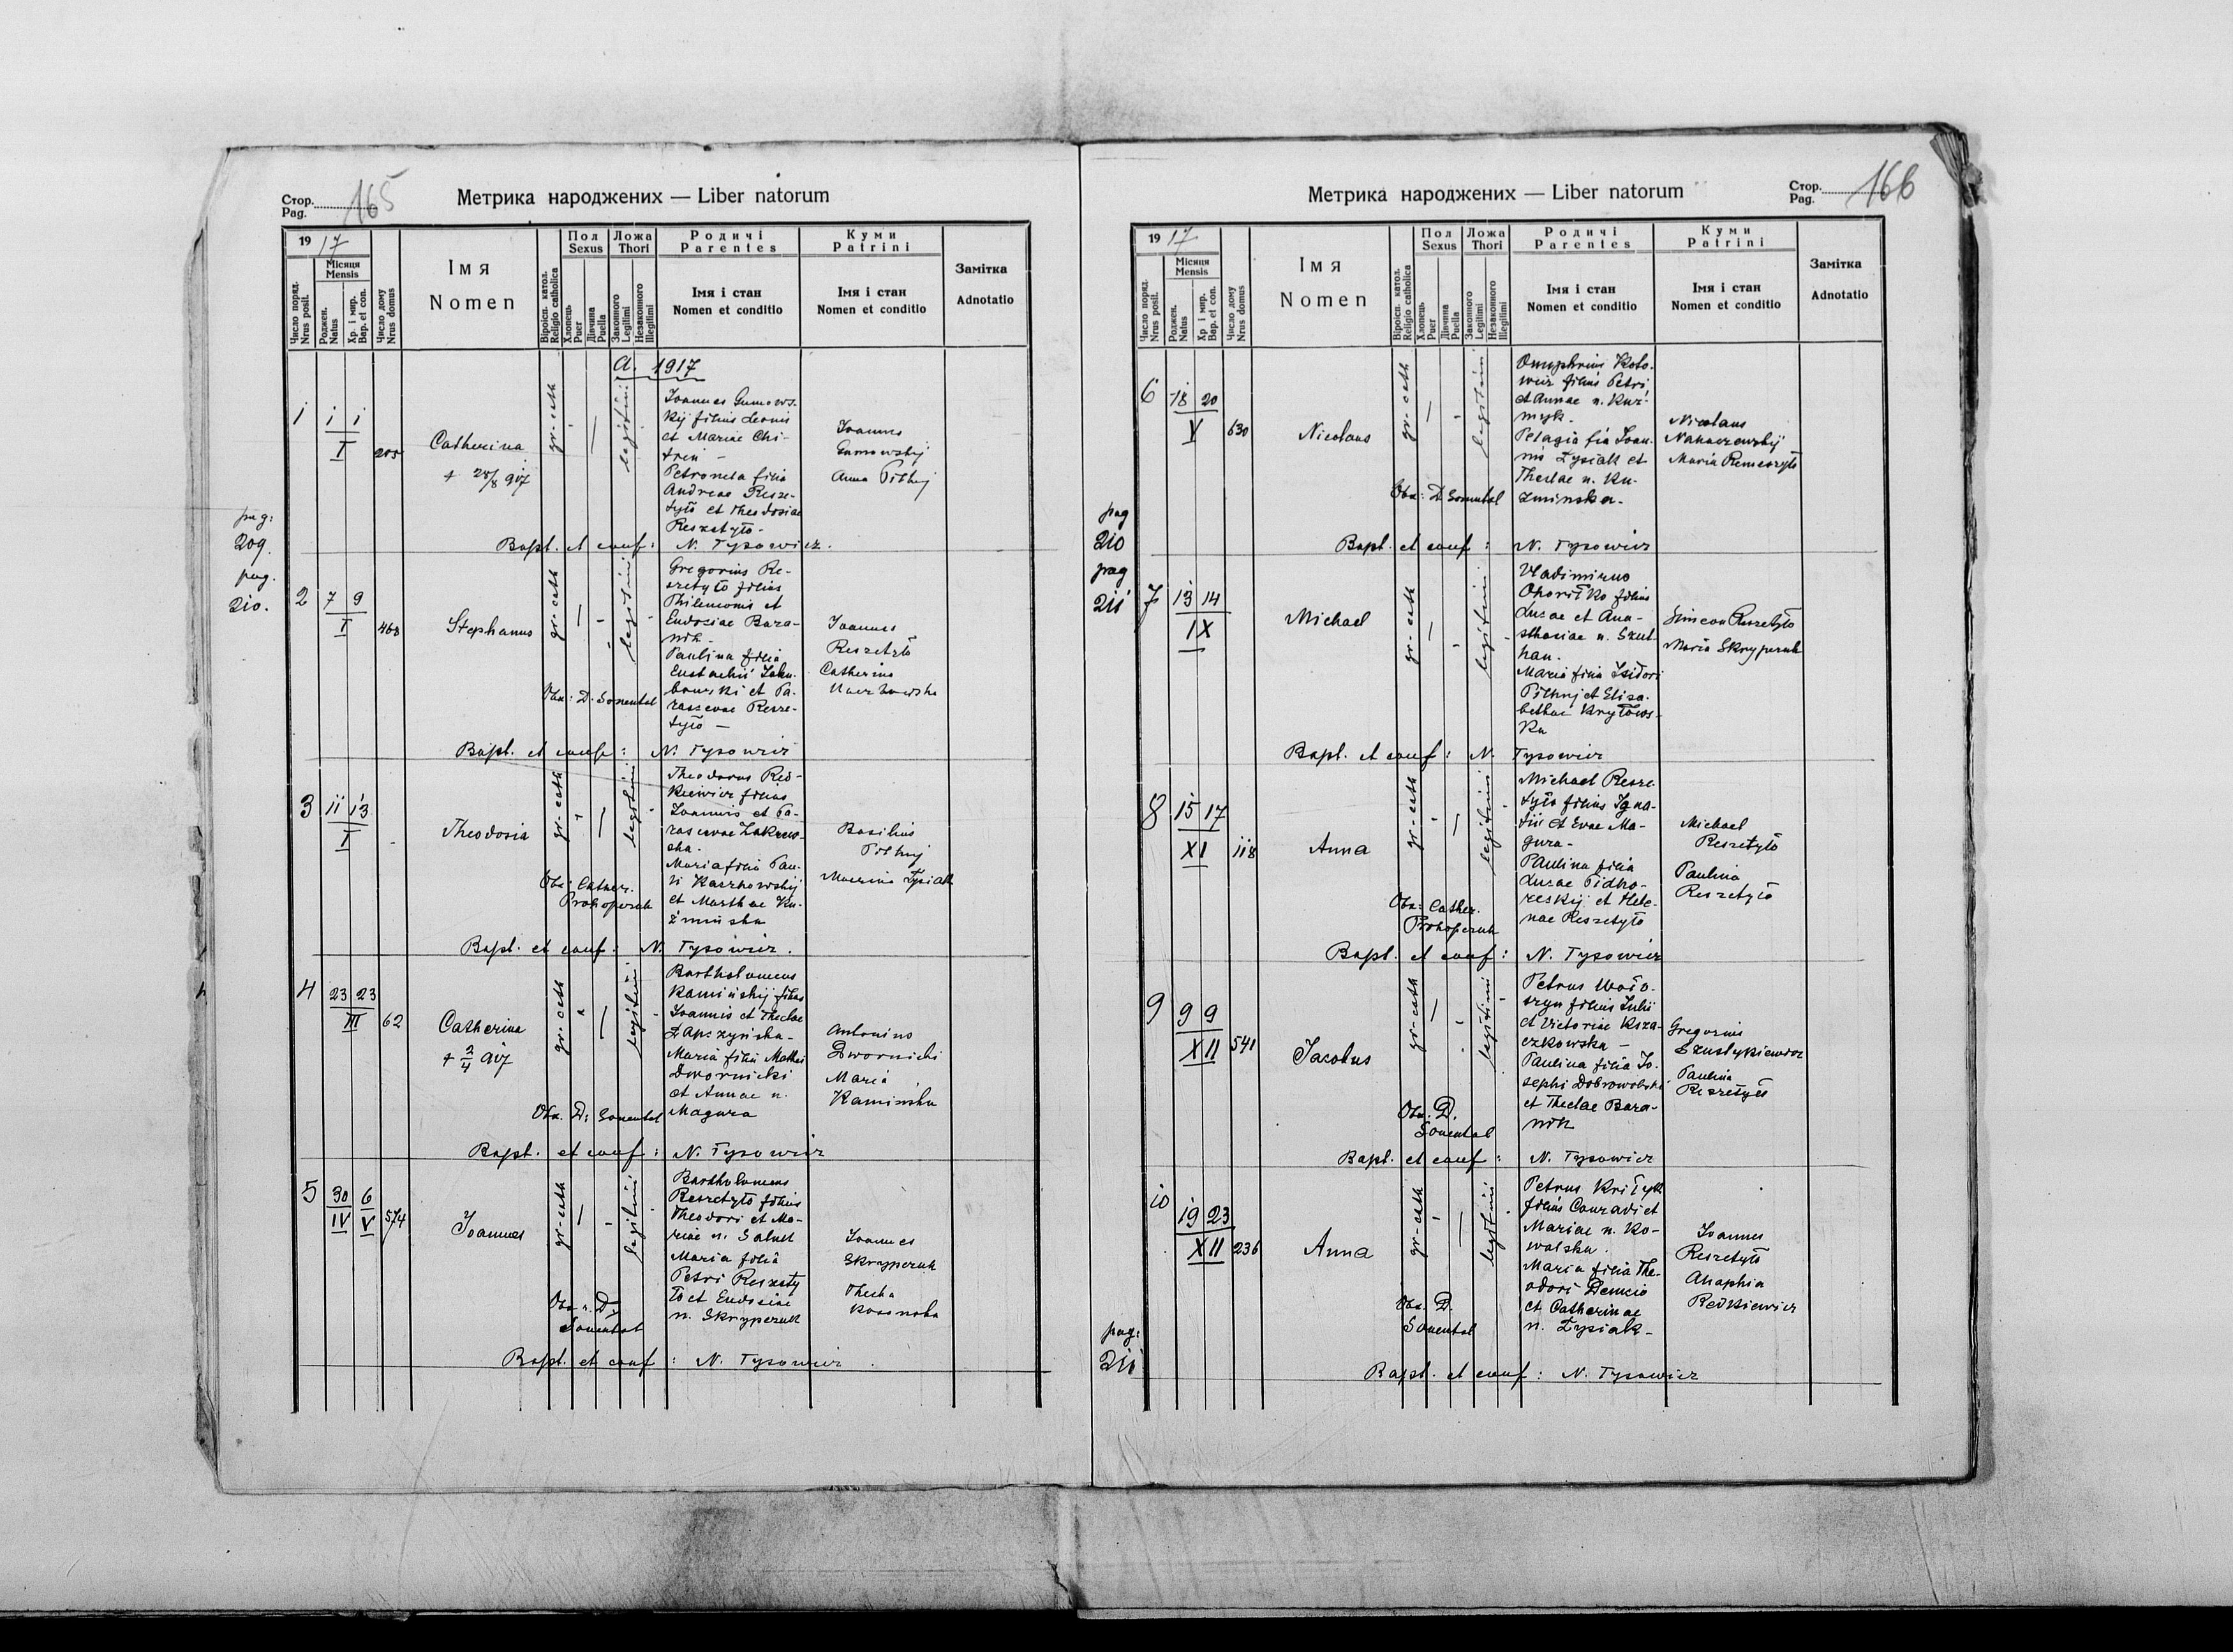 Стор.
Pag. 165
Метрика народжених — Liber natorum
19 17
Число поряд.
Nrus posit.
Місяця
Mensis
Роджен.
Natus
Хр. і мир.
Bap. et con.
Число дому
Nrus domus
Імя
Nomen
Віроісп. катол.
Religio catholica
Пол
Sexus
Хлопець
Puer
Дівчина
Puella
Ложа
Thori
Законного
Legitimi
Незаконного
Illegitimi
Родичі
Parentes
Імя і стан
Nomen et conditio
Куми
Patrini
Імя і стан
Nomen et conditio
Замітка
Adnotatio
A. 1917
pag:
209.
1
1 1
I
205
Catherina
+ 28/8 917
gr-cath
legitimi
Joannes Gumows-
kij filius Leonis
et Mariae Chi-
Petronela filia
Andreae Resze-
tyło et Theodosiae
Reszetyło -
Joannes
Gumowskij
Anna Pithyj
Bapt. et conf: N. Tysowicz.
pag.
210.
2
7 9
I
468
Stephanus
gr-cath
legitimi
Gregorius Re-
szetyło filius
Philemonis et
Eudosiae Bara-
nik -
Paulina filia
Eustachii Jaku-
bowski et Pa-
rascevae Resze-
tyło —
Joannes
Reszetyło
Catherina
Obst: D. Sonental
Bapt. et conf: N. Tysowicz
3
11 13
I
-
Theodosia
gr-cath
legitimi
Theodorus Red-
kiewicz filius
Joannis et Pa-
rascevae Zakrews-
ska.
Maria filia Pau-
li Kaczkowskij
et Marthae Ku-
źmińska
Basilius
Pithyj
Łysiak
Obst: Cather.
Prokoperuk
Bapt. et conf: N. Tysowicz.
4
23 23
III
62
Catherina
+ 2/4 917
gr-cath
legitimi
Bartholomeus
Kamińskij filius
Joannis et Theclae
Łapczyńska -
Maria filia Mathei
Dwornicki
et Annae n.
Magura
Antonius
Dwornicki
Maria
Kamińska
Obst. D: Sonental
Bapt. et conf: N. Tysowicz
5
30 6
IV V
574
Joannes
gr-cath
legitimi
Bartholomeus
Reszetyło filius
Theodori et Ma-
riae n. Saluk
Maria filia
Petri Reszety
ło et Eudosiae
n. Skryperuk
Joannes
Skryperuk
Thecla
Obst. D.
Sonental
Bapt. et conf: N. Tysowicz
Стор.
Pag. 166
Метрика народжених — Liber natorum
19 17
Число поряд.
Nrus posit.
Місяця
Mensis
Роджен.
Natus
Хр. і мир.
Bap. et con.
Число дому
Nrus domus
Імя
Nomen
Віроісп. катол.
Religio catholica
Пол
Sexus
Хлопець
Puer
Дівчина
Puella
Ложа
Thori
Законного
Legitimi
Незаконного
Illegitimi
Родичі
Parentes
Імя і стан
Nomen et conditio
Куми
Patrini
Імя і стан
Nomen et conditio
Замітка
Adnotatio
pag
210
6
18 20
V
630
Nicolaus
gr-cath
legitimi
Onuphrius Koto-
wicz filius Petri
et Annae n. Kuź-
myk.
Pelagia fia Joan-
nis Łysiak et
Theclae n. Ku-
zminska -
Nicolaus
Maria Remeszyło
Obst: D. Sonental
Bapt. et conf: N. Tysowicz
pag
211
7
13 14
IX
Michael
gr-cath
legitimi
Vladimirus
Lucae et Ana-
sthasiae n. Skul-
han.
Maria filia Isidori
Pithyj et Elisa-
bethae Krytows-
ka
Simeon Reszetyło
Maria Skryperuk
Bapt. et conf: N. Tysowicz
8
15 17
XI
118
Anna
gr-cath
legitimi
Michael Resze-
tyło filius Igna-
tii et Evae Ma-
gura -
Paulina filia
Lucae Pidho-
reskij et Hele-
nae Reszetyło
Michael
Reszetyło
Paulina
Reszetyło
Obst: Cather.
Prokoperuk
Bapt. et conf: N. Tysowicz
9
9 9
XII
541
Jacobus
gr-cath
legitimi
Petrus Woło-
szyn filius Julii
et Victoriae Ksza-
czkowska —
Paulina filia Jo-
sephi Dobrowolski
et Theclae Bara-
nik
Gregorius
Szustykiewicz
Paulina
Reszetyło
Obst. D.
Sonental
Bapt. et conf: N. Tysowicz
10
19 23
XII
236
Anna
gr-cath
legitimi
filius Conradi et
Mariae n. Ko-
walska.
Maria filia The-
odori Demcio
et Catherinae
n. Łysiak -
Joannes
Reszetyło
Ahaphia
Redkiewicz
Obst. D.
Sonental
pag:
211
Bapt. et conf: N. Tysowicz